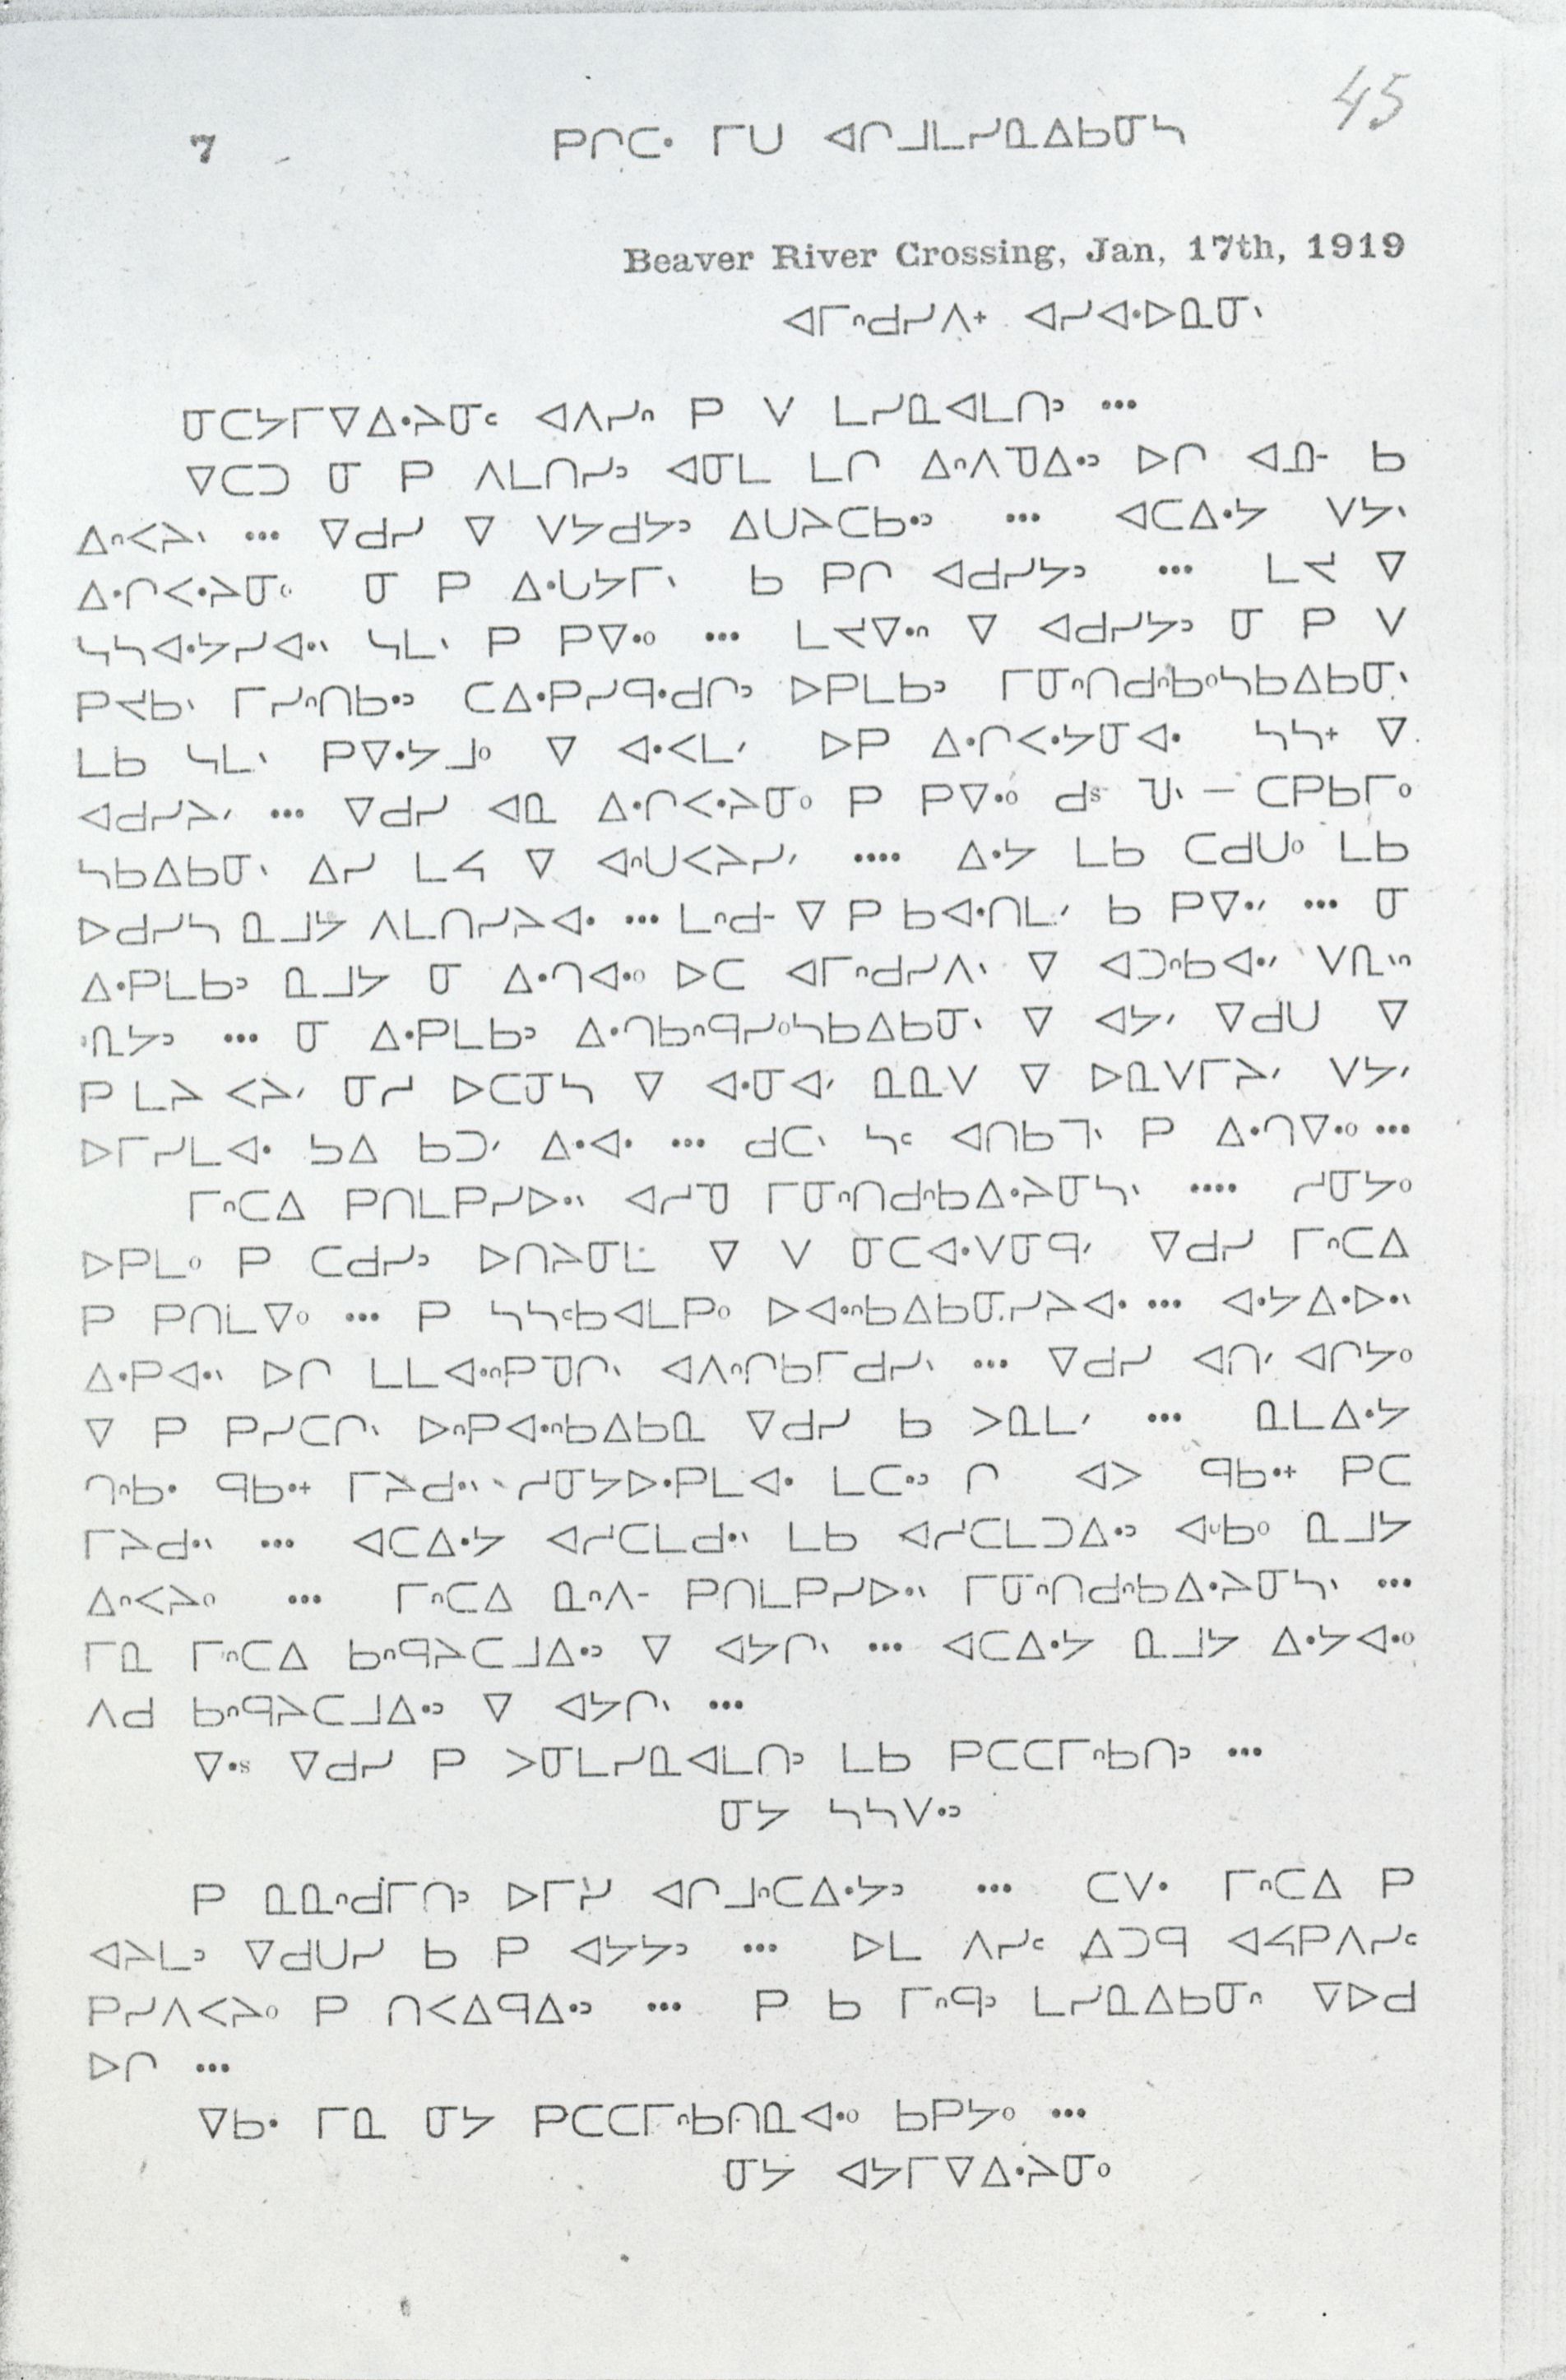 45
7 ᑭᒋᑕᐧ ᒥᑌ ᐊᒋᒧᒪᓯᓇᐃᑲᓂᓴ
Beaver River Crossing, Jan, 17th, 1919
ᐊᒥᐢᑯᓯᐱᐩ ᐊᓯᐊᐧᐅᓇᓂᐠ
ᓂᑕᔭᒥᐁᐃᐧᔨᓂᑦ ᐊᐱᓯᐢ ᑭ ᐯ ᒪᓯᓇᐊᒪᑎᐣ ...
ᐁᑕᑐ ᓂ ᑭ ᐱᒪᑎᓯᐣ ᐊᓂᒪ ᒪᒋ ᐃᐢᐱᑫᐃᐧᐣ ᐅᒋ ᐊᓄᐨ ᑲ
ᐃᐢᐸᔨᐠ ... ᐁᑯᓯ ᐁ ᐯᔭᑯᔭᐣ ᐃᑌᔨᑕᑲᐧᐣ ... ᐊᑕᐃᐧᔭ ᐯᔭᐠ
ᐃᐧᒋᐸᐧᔨᓂᐤ ᓂ ᑭ ᐃᐧᒐᔭᒥᐠ ᑲ ᑭᒋ ᐊᑯᓯᔭᐣ ... ᒪᔪ ᐁ
ᓴᓴᐊᐧᔭᓯᐊᐧᐠ ᓴᒪᐠ ᑭ ᑭᐁᐧᐤ ... ᒪᔪᐁᐧᐢ ᐁ ᐊᑯᓯᔭᐣ ᓂ ᑭ ᐯ
ᑭᔪᑲᐠ ᒥᓯᐢᑎᑲᐧᐣ ᑕᐃᐧᑭᓯᑫᐧᑯᒋᐣ ᐅᑭᒪᑲᐣ ᒥᓂᐢᑎᑯᐢᑲᐤᓴᑲᐃᑲᓂᐠ
ᒪᑲ ᓴᒪᐠ ᑭᐁᐧᔭᒧᐤ ᐁ ᐊᐧᐸᒪᐟ ᐅᑭ ᐃᐧᒋᐸᐧᔭᓂᐊᐧ ᓴᓴᐩ ᐁ
ᐊᑯᓯᔨᐟ ... ᐁᑯᓯ ᐊᓇ ᐃᐧᒋᐸᐧᔨᓂᐤ ᑭ ᑭᐁᐧᐤ ᑯˢ ᓓᐠ — ᑕᑭᑲᒥᐤ
ᓴᑲᐃᑲᓂᐠ ᐃᓯ ᒪᔦ ᐁ ᐊᐢᑌᐸᔨᓯᐟ .... ᐃᐧᔭ ᒪᑲ ᑕᑯᑌᐤ ᒪᑲ
ᐅᑯᓯᓴ ᓇᒧᔭ ᐱᒪᑎᓯᔨᐊᐧ ... ᒪᐢᑯᐨ ᐁ ᑭ ᑲᐊᐧᑎᒪᐟ ᑲ ᑭᐁᐧᐟ ... ᓂ
ᐃᐧᑭᒪᑲᐣ ᓇᒧᔭ ᓂ ᐃᐧᒉᐊᐧᐤ ᐅᑕ ᐊᒥᐢᑯᓯᐱᐠ ᐁ ᐊᑐᐢᑲᐊᐧᐟ
ᓇᔭᐣ ... ᓂ ᐃᐧᑭᒪᑲᐣ ᐃᐧᒉᑲᐢᑫᓯᐤᓴᑲᐃᑲᓂᐠ ᐁ ᐊᔭᐟ ᐁᑯᑎ ᐁ
ᑭ ᒪᔨ ᐸᔨᐟ ᓂᓱ ᐅᑕᓂᓴ ᐁ ᐊᐧᓂᐊᐟ ᓇᓇᐯ ᐁ ᐅᓇᐯᒥᔨᐟ ᐯᔭᐟ
ᐅᒥᓯᒪᐊᐧ ᓵᐃ ᑲᑐᐟ ᐃᐧᐊᐧ ... ᑯᑕᐠ ᓴᑦ ᐊᑎᑲᒣᐠ ᑭ ᐃᐧᒉᐁᐧᐤ ...
ᒥᐢᑕᐃ ᑭᑎᒪᑭᓯᐅᐧᐠ ᐊᓱᑫ ᒥᓂᐢᑎᑯᐢᑲᐃᐧᔨᓂᓴᐠ .... ᓱᓂᔭᐤ
ᐅᑭᒪᐤ ᑭ ᑕᑯᓯᐣ ᐅᑎᔨᓂᒪ ᐁ ᐯ ᓂᑕᐊᐧᐯᓂᑫᐟ ᐁᑯᓯ ᒥᐢᑕᐃ
ᑭ ᑭᑎᒪᐁᐤ ... ᑭ ᓴᓴᑦᑲᐊᒪᑭᐤ ᐅᐊᐧᐢᑲᐃᑲᓂᓯᔨᐊᐧ ... ᐊᐧᔭᐃᐧᐅᐧᐠ
ᐃᐧᑭᐊᐧᐠ ᐅᒋ ᒪᒪᐊᐧᐢᑭᑫᒋᐠ ᐊᐱᐢᒋᑲᒥᑯᓯᐠ ... ᐁᑯᓯ ᐊᑎᐟ ᐊᒋᔭᐤ
ᐁ ᑭ ᑭᓯᑕᒋᐠ ᐅᐢᑭᐊᐧᐢᑲᐃᑲᓇ ᐁᑯᓯ ᑲ ᐳᓇᒪᐟ ... ᓇᒪᐃᐧᔭ
ᒉᐢᑲᐧ ᑫᑲᐧᐩ ᒥᔨᑯᐧᐠ ᓱᓂᔭᐅᐧᑭᒪᐊᐧ ᒪᑕᐧᐣ ᒋ ᐊᐳ ᑫᑲᐧᐩ ᑭᑕ
ᒥᔨᑯᐧᐠ ... ᐊᑕᐃᐧᔭ ᐊᓱᑕᒪᑯᐧᐠ ᒪᑲ ᐊᓱᑕᒪᑐᐃᐧᐣ ᐊᐧᑲᐤ ᓇᒧᔭ
ᐃᐢᐸᔨᐤ ... ᒥᐢᑕᐃ ᓇᐢᐱᐨ ᑭᑎᒪᑭᓯᐅᐧᐠ ᒥᓂᐢᑎᑯᐢᑲᐃᐧᔨᓂᓴᐠ ...
ᒥᓇ ᒥᐢᑕᐃ ᑲᐢᑫᔨᑕᒧᐃᐧᐣ ᐁ ᐊᔭᒋᐠ ... ᐊᑕᐃᐧᔭ ᓇᒧᔭ ᐃᐧᔭᐊᐧᐤ
ᐱᑯ ᑲᐢᑫᔨᑕᒧᐃᐧᐣ ᐁ ᐊᔭᒋᐠ ...
ᐁᐧˢ ᐁᑯᓯ ᑭ ᐳᓂᒪᓯᓇᐊᒪᑎᐣ ᒪᑲ ᑭᑕᑕᒥᐢᑲᑎᐣ ...
ᓂᔭ ᓴᓴᐯᐧᐣ
ᑭ ᓇᓇᐢᑯᒥᑎᐣ ᐅᒥᓯ ᐊᒋᒧᐢᑕᐃᐧᔭᐣ ... ᑕᐯᐧ ᒥᐢᑕᐃ ᑭ
ᐊᔨᒪᐣ ᐁᑯᑌᓯ ᑲ ᑭ ᐊᔭᔭᐣ ... ᐅᒪ ᐱᓯᑦ ᐃᑐᑫ ᐊᔦᑭᐱᓯᑦ
ᑭᓯᐱᐸᔨᐤ ᑭ ᑎᐸᐃᑫᐃᐧᐣ ... ᑭ ᑲ ᒥᐢᑫᐣ ᒪᓯᓇᐃᑲᓂᐢ ᐁᐅᑯ
ᐅᒋ ...
ᐁᑲᐧ ᒥᓇ ᓂᔭ ᑭᑕᑕᒥᐢᑲᑎᓇᐊᐧᐤ ᑲᑭᔭᐤ ...
ᓂᔭ ᐊᔭᒥᐁᐃᐧᔨᓂᐤ